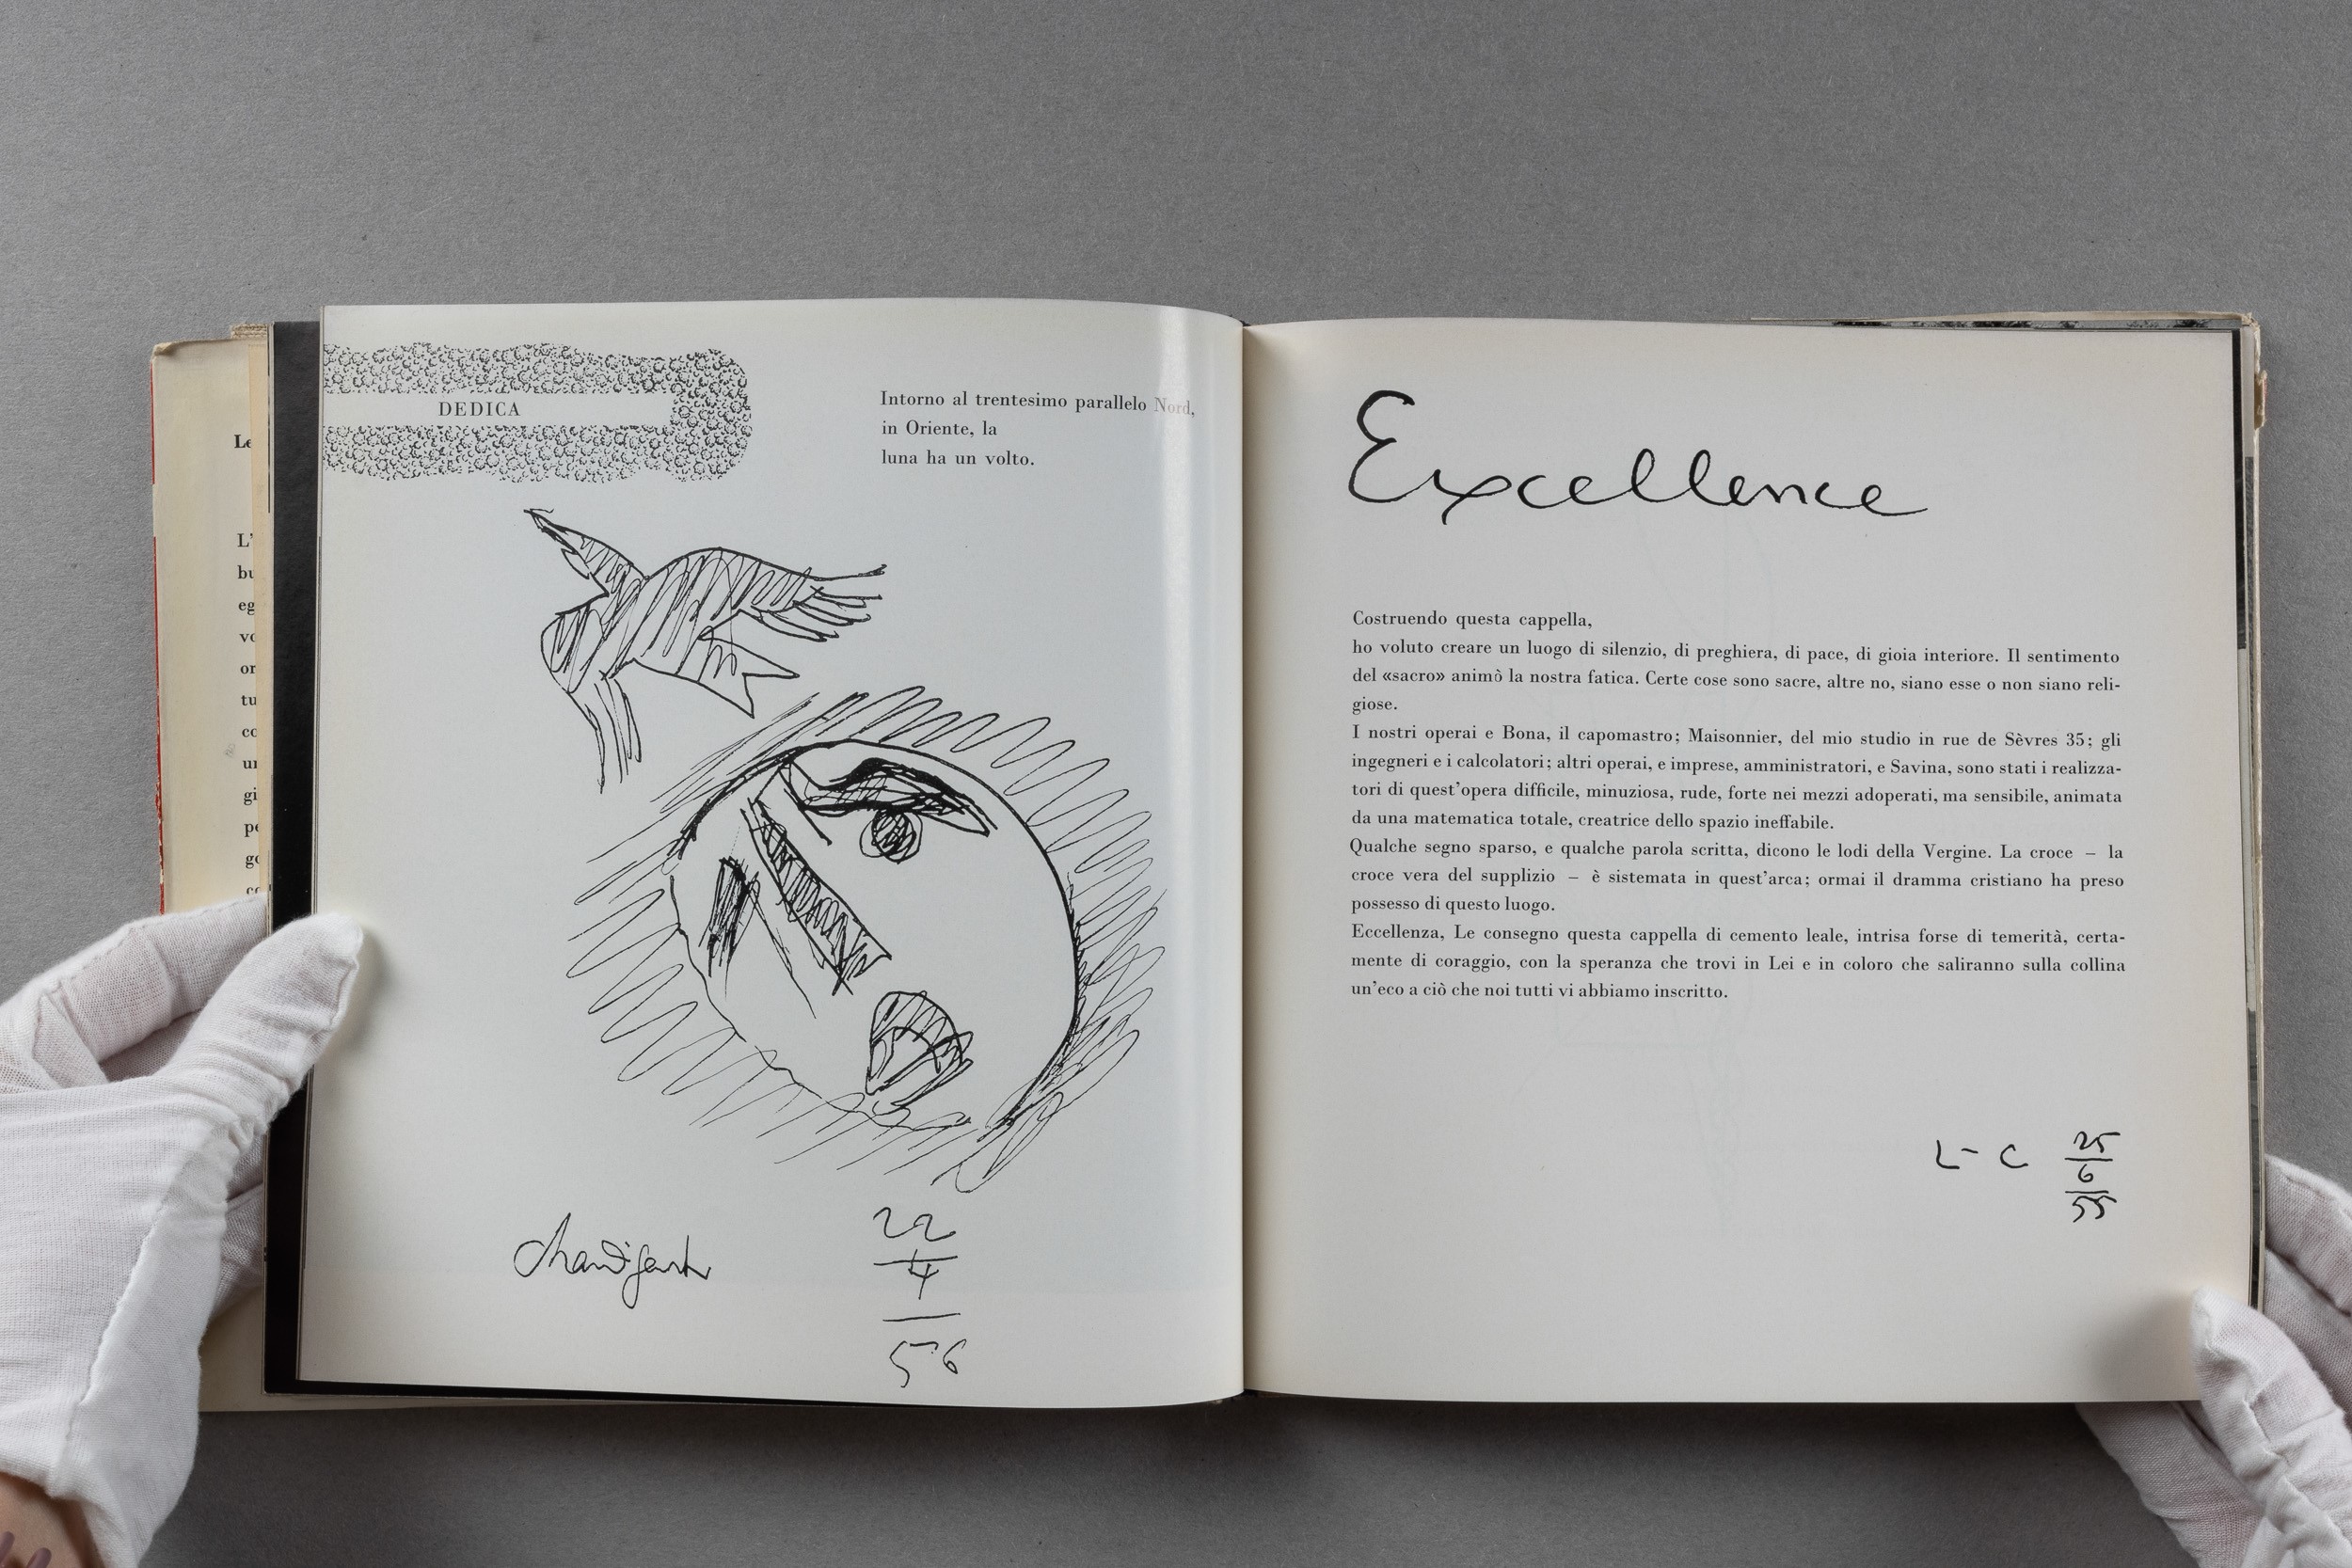 Le
L'
bu
eg
vo
or
tu
co
un
gi
pe
go
co
DEDICA
Intorno al trentesimo parallelo Nord,
in Oriente, la
luna ha un volto.
Chandigarh
22
4
56
Excellence
Costruendo questa cappella,
ho voluto creare un luogo di silenzio, di preghiera, di pace, di gioia interiore. Il sentimento
del «sacro» animò la nostra fatica. Certe cose sono sacre, altre no, siano esse o non siano reli-
giose.
I nostri operai e Bona, il capomastro; Maisonnier, del mio studio in rue de Sèvres 35; gli
ingegneri e i calcolatori; altri operai, e imprese, amministratori, e Savina, sono stati i realizza-
tori di quest'opera difficile, minuziosa, rude, forte nei mezzi adoperati, ma sensibile, animata
da una matematica totale, creatrice dello spazio ineffabile.
Qualche segno sparso, e qualche parola scritta, dicono le lodi della Vergine. La croce – la
croce vera del supplizio – è sistemata in quest'arca; ormai il dramma cristiano ha preso
possesso di questo luogo.
Eccellenza, Le consegno questa cappella di cemento leale, intrisa forse di temerità, certa-
mente di coraggio, con la speranza che trovi in Lei e in coloro che saliranno sulla collina
un'eco a ciò che noi tutti vi abbiamo inscritto.
L-C 25
6
55